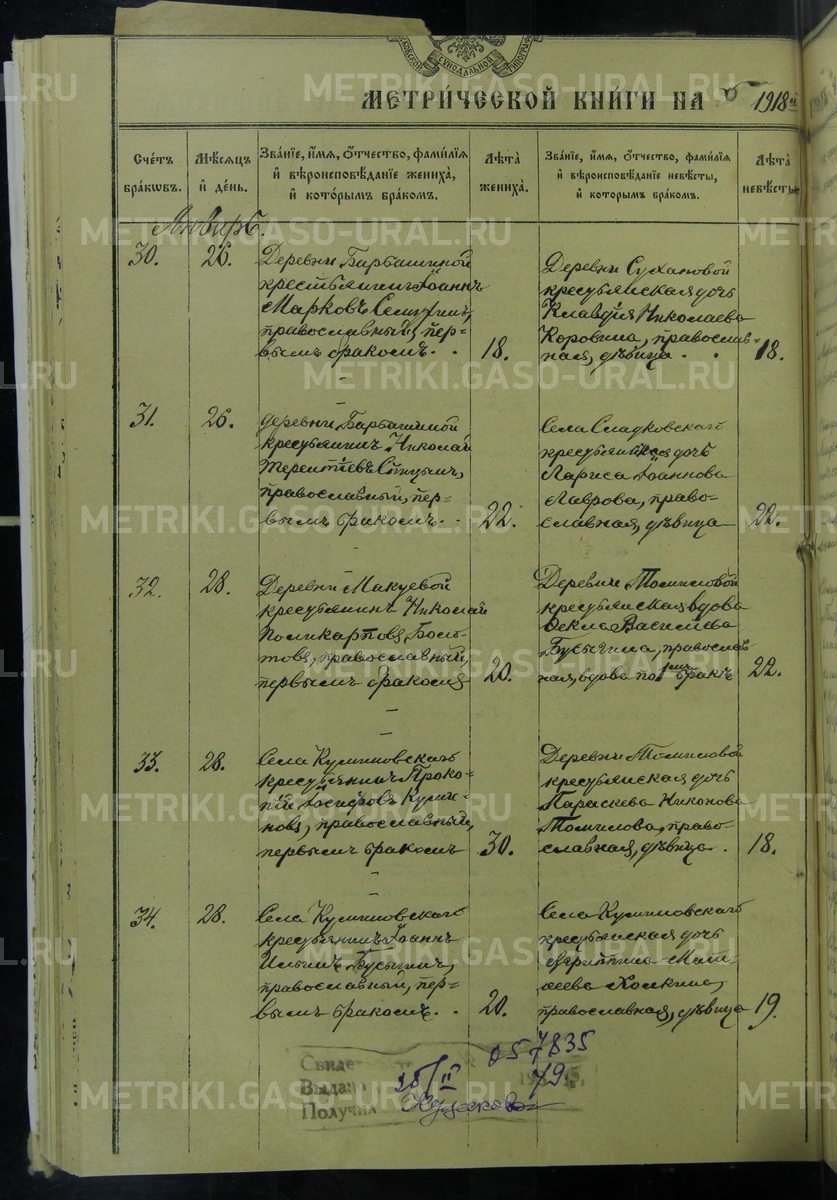 МЕТРИ́ЧЕСКОЙ КНИ́ГИ НА 1918й
Сче́тъ бра́кѡвъ.
Мѣ́сѧцъ и҆ де́нь.
Зва́нїе, и҆́мѧ, ѻ҆́тчество, фами́лїѧ и҆ вѣроисповѣ́данїе жениха̀, и҆ кото́рымъ бра́комъ.
Лѣ́та жениха̀.
Зва́нїе, и҆́мѧ, ѻ҆́тчество, фами́лїѧ и҆ вѣроисповѣ́данїе невѣ́сты, и҆ кото́рымъ бра́комъ.
Лѣ́та невѣ́сты
Январь.
30.
26.
Деревни Барбашиной
крестьянинъ Іоаннъ
Марковъ
православный, пер-
вымъ бракомъ. .
18.
Деревни Сухановой
крестьянская дочь
Клавдія Николаева
Коровина, православ-
ная, дѣвица . .
18.
31.
26.
Деревни Барбашиной
крестьянинъ Николай
Терентіевъ Спицынъ,
православный, пер-
вымъ бракомъ. .
22.
Села Сладковскаго
крестьянская дочь
Лариса Іоаннова
Лаврова, право-
славная, дѣвица
22.
32.
28.
Деревни Макуевой
крестьянинъ Николай
Поликарповъ Боло-
товъ, православный,
первымъ бракомъ
20.
Деревни Томиловой
крестьянская вдова
Ѳекла Васильева
Бусыгина, православ
ная, вдова по 1мъ бракѣ
22.
33.
28.
Села Куликовскаго
крестьянинъ Проко-
пій Іосифовъ Кули-
ковъ, православный,
первымъ бракомъ
30.
Деревни Томиловой
крестьянская дочь
Параскева Никонова
Томилова, право-
славная, дѣвица .
18.
34.
28.
Села Куликовскаго
крестьянинъ Іоаннъ
Ильинъ Бусыгинъ,
православный, пер-
вымъ бракомъ. .
20.
Села Куликовскаго
крестьянская дочь
православная, дѣвица
19.
057835
28/II 79
Выдано
Получил
METRIKI.GASO-URAL.RU